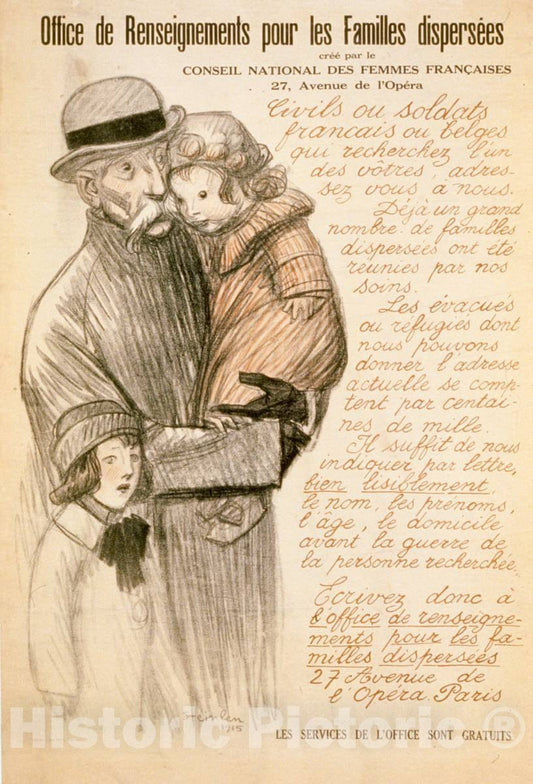 Office de Renseignements pour les Familles dispersées
créé par le
CONSEIL NATIONAL DES FEMMES FRANÇAISES
27, Avenue de l'Opéra
Civils ou soldats
français ou belges
qui recherchez l'un
des vôtres, adres-
sez vous à nous.
Déjà un grand
nombre de familles
dispersées ont été
réunies par nos
soins.
Les évacués
ou réfugiés dont
nous pouvons
donner l'adresse
actuelle se comp-
tent par centai-
nes de mille.
Il suffit de nous
indiquer par lettre,
bien lisiblement,
le nom, les prénoms,
l'âge, le domicile
avant la guerre de
la personne recherchée.
Ecrivez donc à
l'office de renseigne-
ments pour les fa-
milles dispersées
27 Avenue de
l'Opéra. Paris
Steinlen
1915
LES SERVICES DE L'OFFICE SONT GRATUITS
Historic Pictoric ®